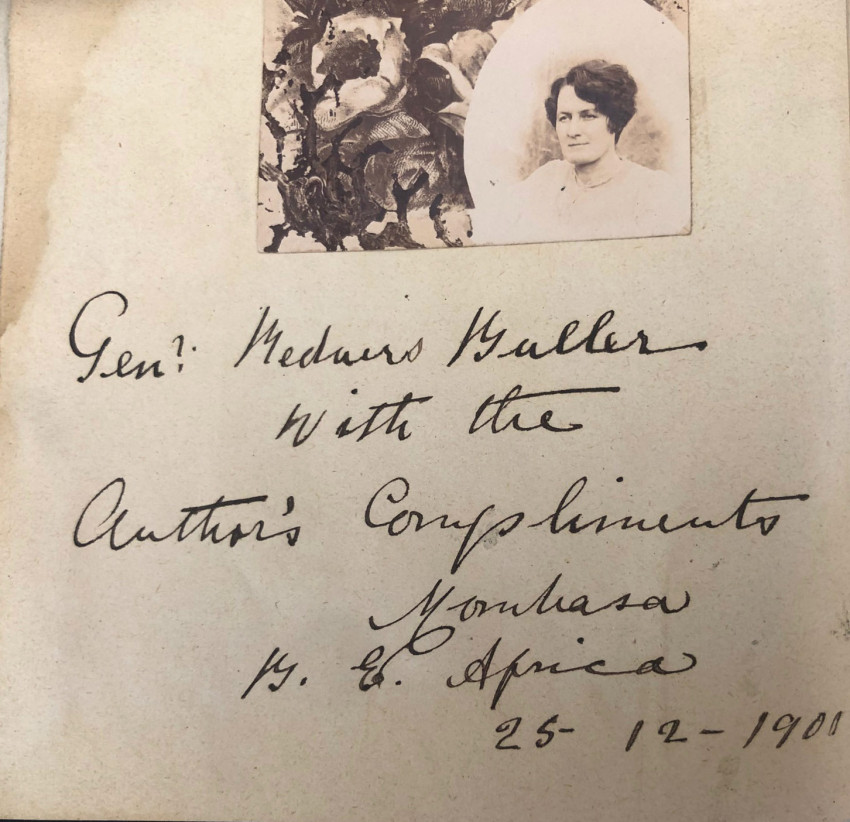 Genl: Redvers Buller
With the
Author's Compliments
Mombasa
B. E. Africa
25- 12-1901